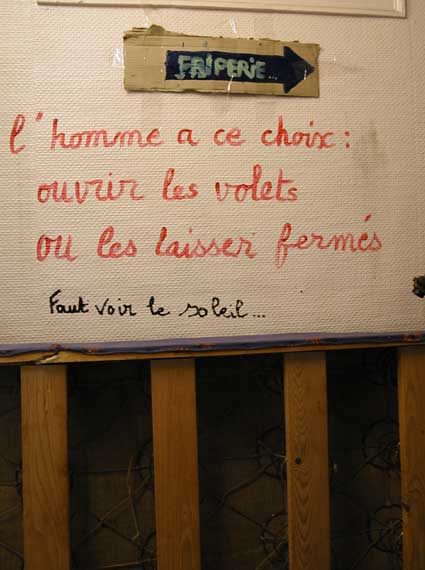 FRIPERIE...
l'homme a ce choix :
ouvrir les volets
ou les laisser fermés
Faut voir le soleil...